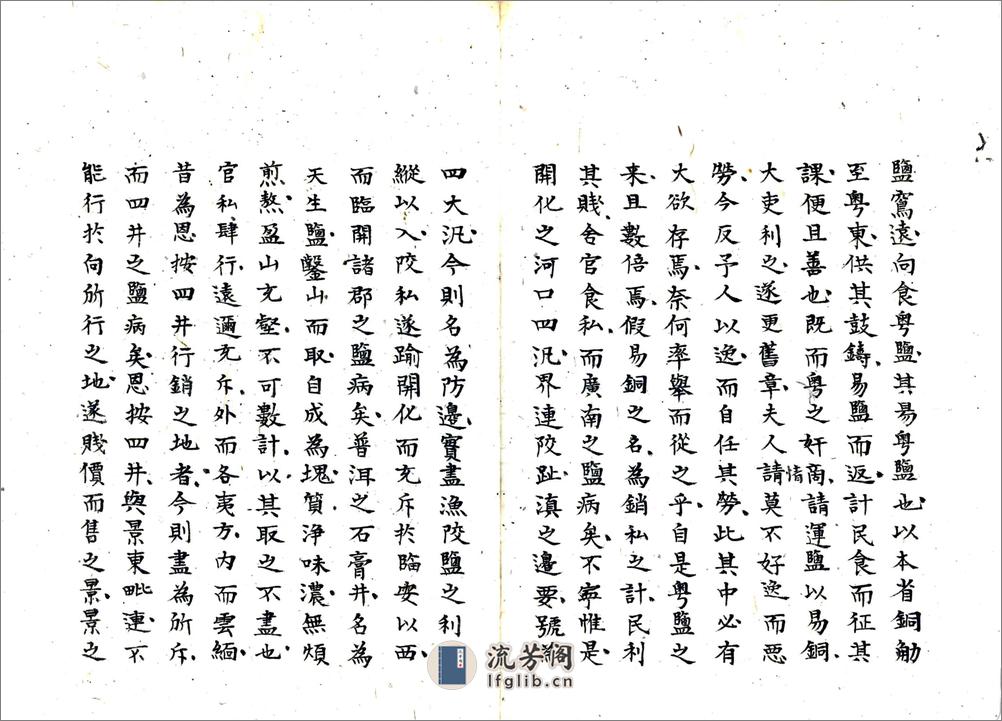 鹽窵遠向食粵鹽其易粵鹽也以本省銅觔
至粵東供其鼓鑄易鹽而返計民食而征其
課便且善也既而粵之奸商請運鹽以易銅
大吏利之遂更舊章夫人請莫不好逸而惡
情
勞今反予人以逸而自任其勞此其中必有
大欲存焉奈何率舉而從之乎自是粵鹽之
来且數倍焉假易銅之名為銷私之計民利
其賤舍官食私而廣南之鹽病矣不寧惟是
開化之河口四汛界連陡趾滇之邊要號為
四大汛今則名為防邊實盡漁陡鹽之利
縱以入陡私遂踰開化而充斥於臨安以西
而臨開諸郡之鹽病矣普洱之石膏井名為
天生鹽鑿山而取自成為塊質淨味濃無煩
煎熬盈山充壑不可數計以其取之不盡也
官私肆行遠邇充斥外而各夷方内而雲緬
昔為恩按四井行銷之地者今則盡為所斥
而四井之鹽病矣恩按四井與景東毗連不
能行於向所行之地遂賤價而售之景景之
流芳阁
lfglib.cn